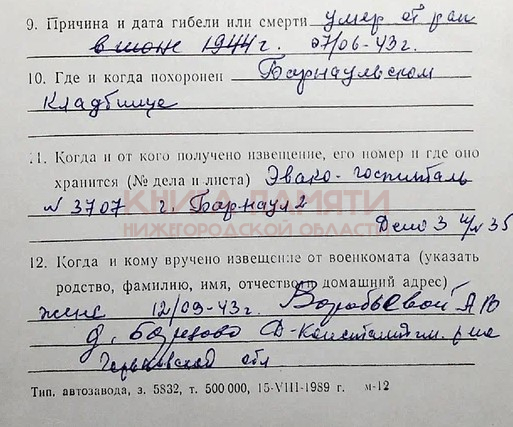 9. Причина и дата гибели или смерти умер от ран
в июне 1944 г. 27/06-43 г.
10. Где и когда похоронен Барнаульском
кладбище
11. Когда и от кого получено извещение, его номер и где оно
хранится (№ дела и листа) Эвако-госпиталь
КНИГА ПАМЯТИ
N 3707 г. Барнаул 2
НИЖЕГОРОДСКОЙ ОБЛАСТИ
Дело 3 35
12. Когда и кому вручено извещение от военкомата (указать
родство, фамилию, имя, отчество и домашний адрес)
жене 12/09-43 г. Воробьевой А В
д. Березово Д-Константин. р-на
Горьковской обл
Тип. автозавода, з. 5832, т. 500 000, 15-VIII-1989 г. м-12